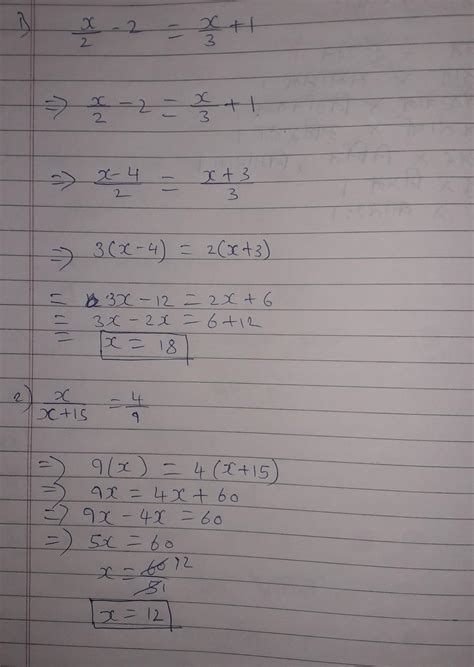 1) x/2 - 2 = x/3 + 1
=> x/2 - 2 = x/3 + 1
=> x-4/2 = x+3/3
=> 3(x-4) = 2(x+3)
= 3x-12 = 2x+6
= 3x-2x = 6+12
= x = 18
2) x/x+15 = 4/9
=> 9(x) = 4(x+15)
=> 9x = 4x+60
=> 9x-4x = 60
=> 5x = 60
x = 60 12/51
x = 12